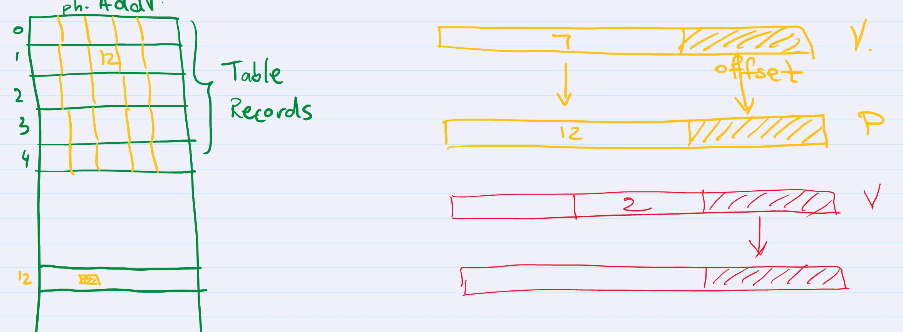 ph. Addr.
0
1
12
2
3
4
Table
Records
12
7
V.
offset
12
P
2
V